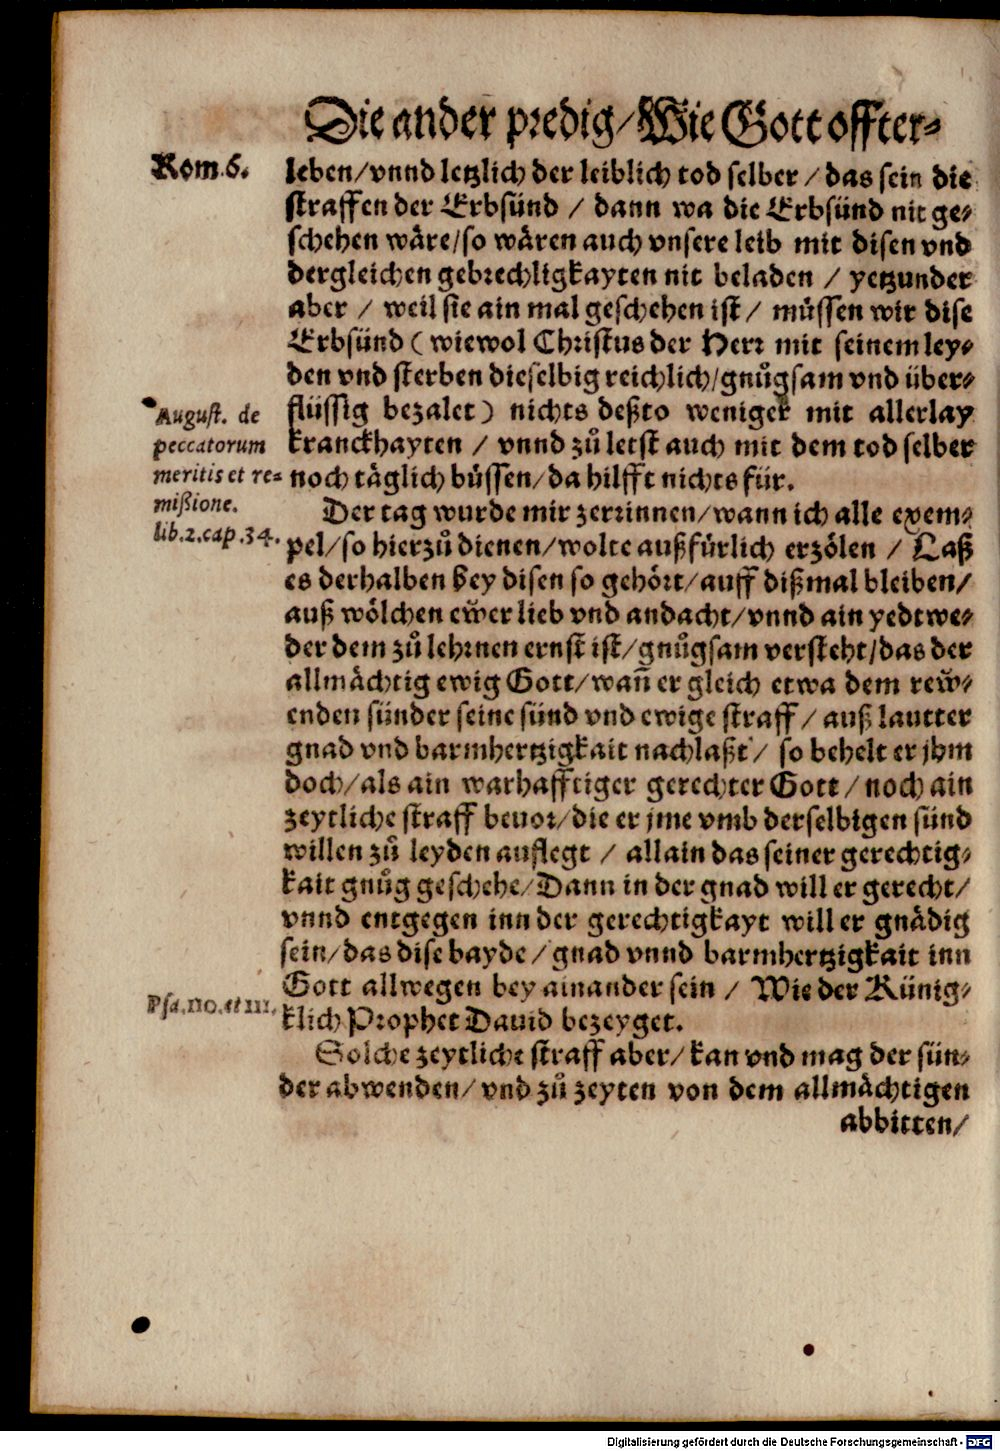 Die ander predig/ Wie Gott offter⸗
Rom.6.
leben/vnnd letzlich der leiblich tod selber / das sein die
straffen der Erbsünd / dann wa die Erbsünd nit ge⸗
schehen wäre/so wären auch vnsere leib mit disen vnd
dergleichen gebrechligkayten nit beladen / yetzunder
aber / weil sie ain mal geschehen ist / müssen wir dise
Erbsünd ( wiewol Christus der Herr mit seinem ley⸗
den vnd sterben dieselbig reichlich/gnůgsam vnd über⸗
flüssig bezalet ) nichts deßto weniger mit allerlay
kranckhayten / vnnd zů letst auch mit dem tod selber
noch täglich büssen/da hilfft nichts für.
August. de
peccatorum
meritis et re⸗
mißione.
lib.2.cap.34.
Der tag wurde mir zerrinnen/wann ich alle exem⸗
pel/so hierzů dienen/wolte außfürlich erzölen / Laß
es derhalben bey disen so gehört/auff dißmal bleiben/
auß wölchen ewer lieb vnd andacht/vnnd ain yedtwe⸗
der dem zů lehrnen ernst ist/gnůgsam versteht/das der
allmächtig ewig Gott/wañ er gleich etwa dem rew⸗
enden sünder seine sünd vnd ewige straff / auß lautter
gnad vnd barmhertzigkait nachlaßt / so behelt er jhm
doch/als ain warhafftiger gerechter Gott / noch ain
zeytliche straff beuor/die er jme vmb derselbigen sünd
willen zů leyden auflegt / allain das seiner gerechtig⸗
kait gnůg geschehe/Dann in der gnad will er gerecht/
vnnd entgegen inn der gerechtigkayt will er gnädig
sein/das dise bayde / gnad vnnd barmhertzigkait inn
Gott allwegen bey ainander sein / Wie der Künig⸗
klich Prophet Dauid bezeyget.
Psa.110.et 111.
Solche zeytliche straff aber/ kan vnd mag der sün⸗
der abwenden/ vnd zů zeyten von dem allmächtigen
abbitten/
Digitalisierung gefördert durch die Deutsche Forschungsgemeinschaft - DFG